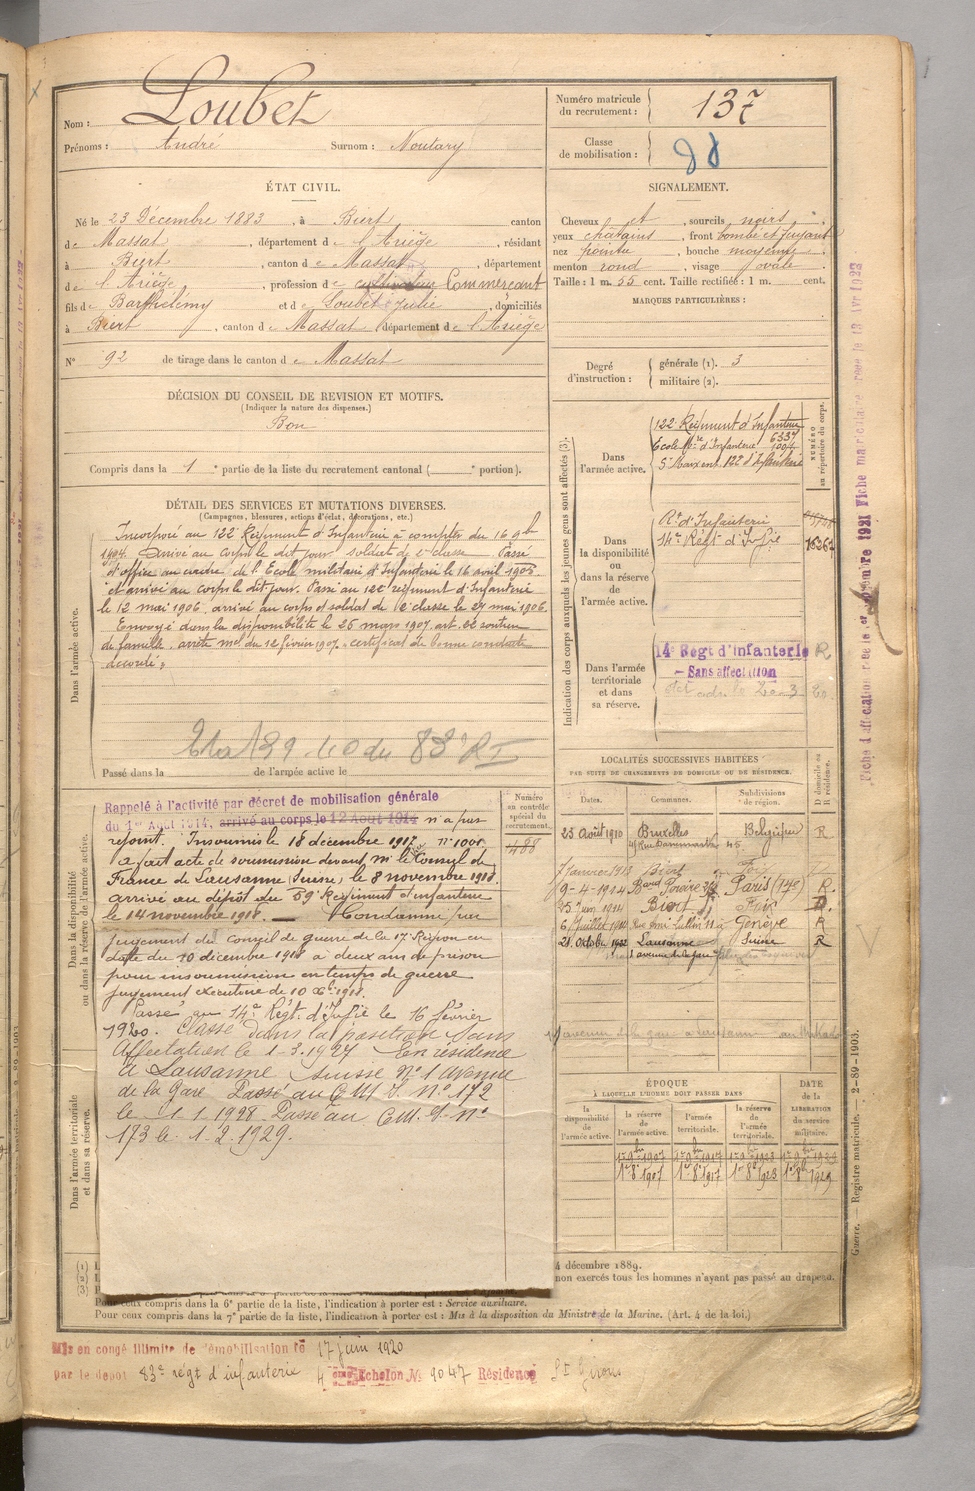 Nom : Loubet
Prénoms : André Surnom : Noutary
Numéro matricule du recrutement : 137
Classe de mobilisation :
ÉTAT CIVIL.
Né le 23 Décembre 1883, à Biert canton
de Massat, département de l'Ariège, résidant
à Biert, canton de Massat, département
de l'Ariège, profession de cultivateur Commerçant
fils de Barthélemy et de Loubet Julie, domiciliés
à Biert, canton de Massat, département de l'Ariège
N° 92 de tirage dans le canton de Massat
SIGNALEMENT.
Cheveux et, sourcils noirs
yeux châtains, front bombé et fuyant
nez pointu, bouche moyenne
menton rond, visage ovale
Taille : 1 m. 55 cent. Taille rectifiée : 1 m. cent.
MARQUES PARTICULIÈRES :
Degré d'instruction : générale (1). 3
militaire (2).
DÉCISION DU CONSEIL DE REVISION ET MOTIFS.
(Indiquer la nature des dispenses.)
Bon
Compris dans la 1e partie de la liste du recrutement cantonal ( e portion).
DÉTAIL DES SERVICES ET MUTATIONS DIVERSES.
(Campagnes, blessures, actions d'éclat, décorations, etc.)
Dans l'armée active.
Incorporé au 122e Régiment d'Infanterie à compter du 16 9b
1904. Arrivé au Corps le dit jour. soldat de 2e classe. Passé
d'office au cadre de l'Ecole militaire d'Infanterie le 16 avril 1905.
et arrivé au corps le dit jour. Passé au 122e régiment d'Infanterie
le 12 mai 1906, arrivé au corps et soldat de 2e classe le 27 mai 1906.
Envoyé dans la disponibilité le 25 mars 1907. art. 22 soutien
de famille. arrêté mel du 12 février 1907. "certificat de bonne conduite
accordé"
83e RI
Passé dans la de l'armée active le
Indication des corps auxquels les jeunes gens sont affectés (3).
NUMÉRO au répertoire du corps.
Dans l'armée active.
122 Régiment d'Infanterie
Ecole Mre d'Infanterie
122 d'Infanterie
Dans la disponibilité ou dans la réserve de l'armée active.
Rt d'Infanterie
14e Régt d'Infie
Dans l'armée territoriale et dans sa réserve.
14e Régt d'infanterie R
— Sans affectation
Dans la disponibilité ou dans la réserve de l'armée active.
Numéro au contrôle spécial du recrutement.
488
Rappelé à l'activité par décret de mobilisation générale
du 1er Août 1914, arrivé au corps le 12 Août 1914 n'a pas
rejoint. Insoumis le 18 décembre 1917 n° 1001
a fait acte de soumission devant Mr le Consul de
France de Lausanne (Suisse) le 8 novembre 1918.
arrivé au dépôt du 59e Régiment d'infanterie
le 14 novembre 1918. — Condamné par
jugement du Conseil de guerre de la 17e Région en
date du 10 décembre 1918 à deux ans de prison
pour insoumission en temps de guerre
jugement exécutoire du 10 Xbre 1918.
Passé au 14e Régt d'Infie le 16 février
1920. Classé dans la position Sans
Affectation le 1-3.1927 En résidence
à Lausanne Suisse N° 1 Avenue
de la Gare Passé au C M I N° 172
le 1.1.1928 Passé au C.M.I. N°
173 le 1.2.1929.
Dans l'armée territoriale et dans sa réserve.
LOCALITÉS SUCCESSIVES HABITÉES
PAR SUITE DE CHANGEMENTS DE DOMICILE OU DE RÉSIDENCE.
Dates. Communes. Subdivisions de région. D domicile ou R résidence.
23 Août 1910 Bruxelles Belgique R
7 janvier 1913 Biert Foix
9-4-1914 Paris (14e) R.
25 juin 1914 Biert Foix D.
6 Juillet 1914 Genève R
21 Octobre 1922 Lausanne Suisse R
1 avenue de la Gare
ÉPOQUE
À LAQUELLE L'HOMME DOIT PASSER DANS
la disponibilité de l'armée active. la réserve de l'armée active. l'armée territoriale. la réserve de l'armée territoriale. DATE de la LIBÉRATION du service militaire.
1er 8b 1907 1er 8b 1917 1er 8b 1923 1er 8b 1929
4 décembre 1889.
non exercés tous les hommes n'ayant pas passé au drapeau.
(1)
(2)
(3)
Pour ceux compris dans la 6e partie de la liste, l'indication à porter est : Service auxiliaire.
Pour ceux compris dans la 7e partie de la liste, l'indication à porter est : Mis à la disposition du Ministre de la Marine. (Art. 4 de la loi.)
Mis en congé illimité de démobilisation le 17 juin 1920
par le dépôt 83e régt d'infanterie 4eme Echelon N° 9047 Résidence St Girons
Guerre. — Registre matricule. — 2-89-1903.